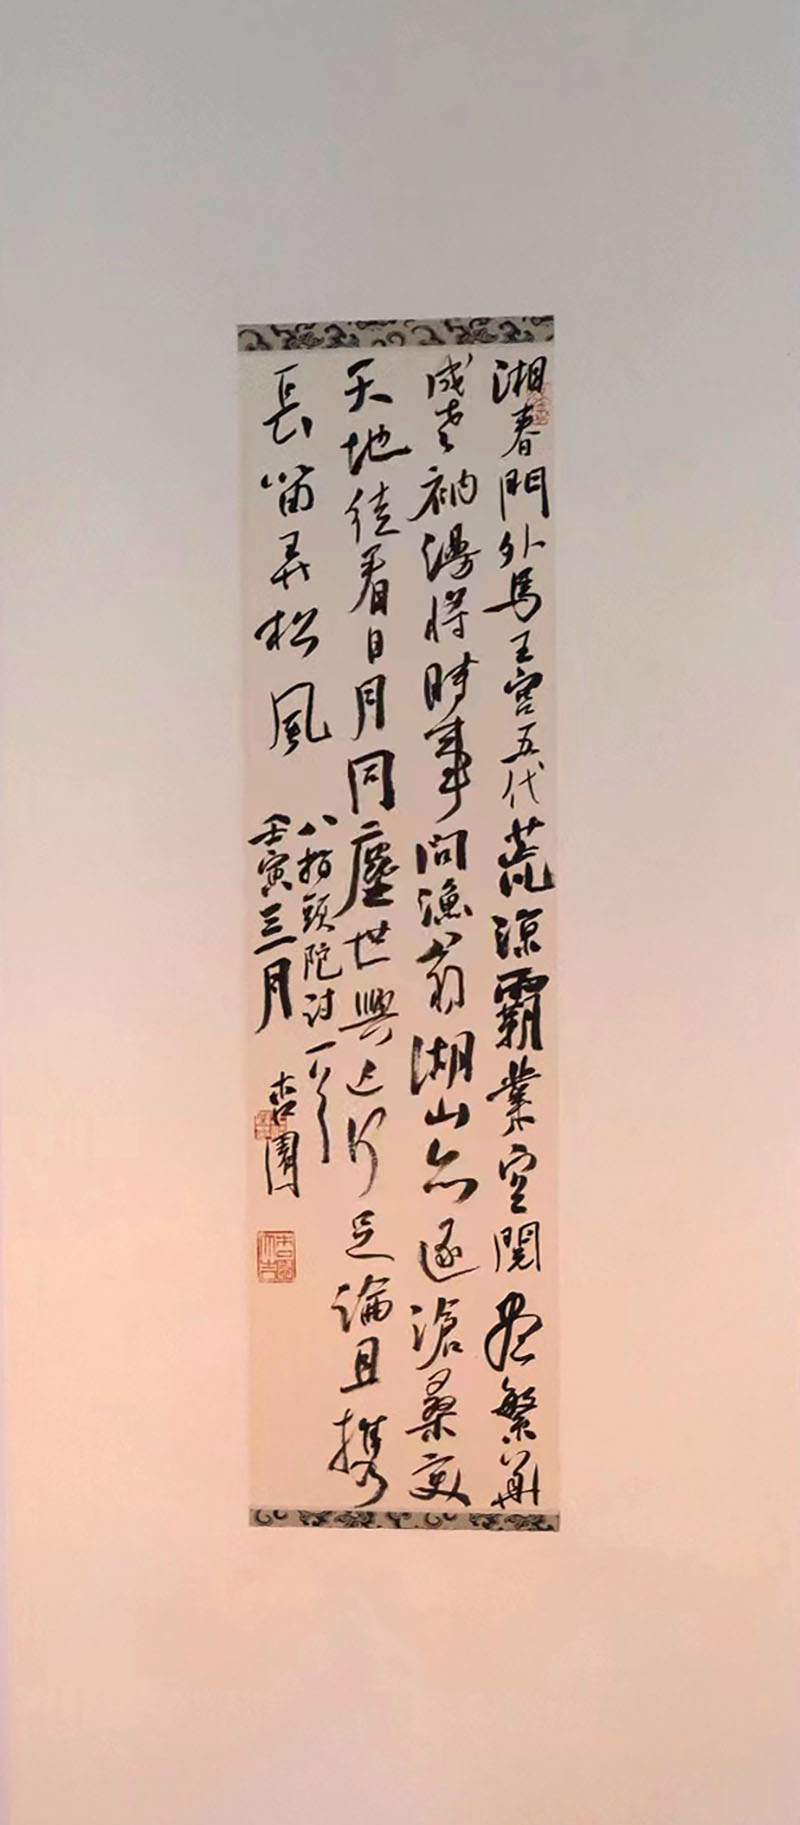 湘春門外馬王宮五代荒涼霸業空閱盡繁華
成老衲漫將時事問漁翁湖山亦逐滄桑變
天地徒看日月同塵世興亡何足論且携
長笛弄松風
八指頭陀詩一首
壬寅三月 杏園